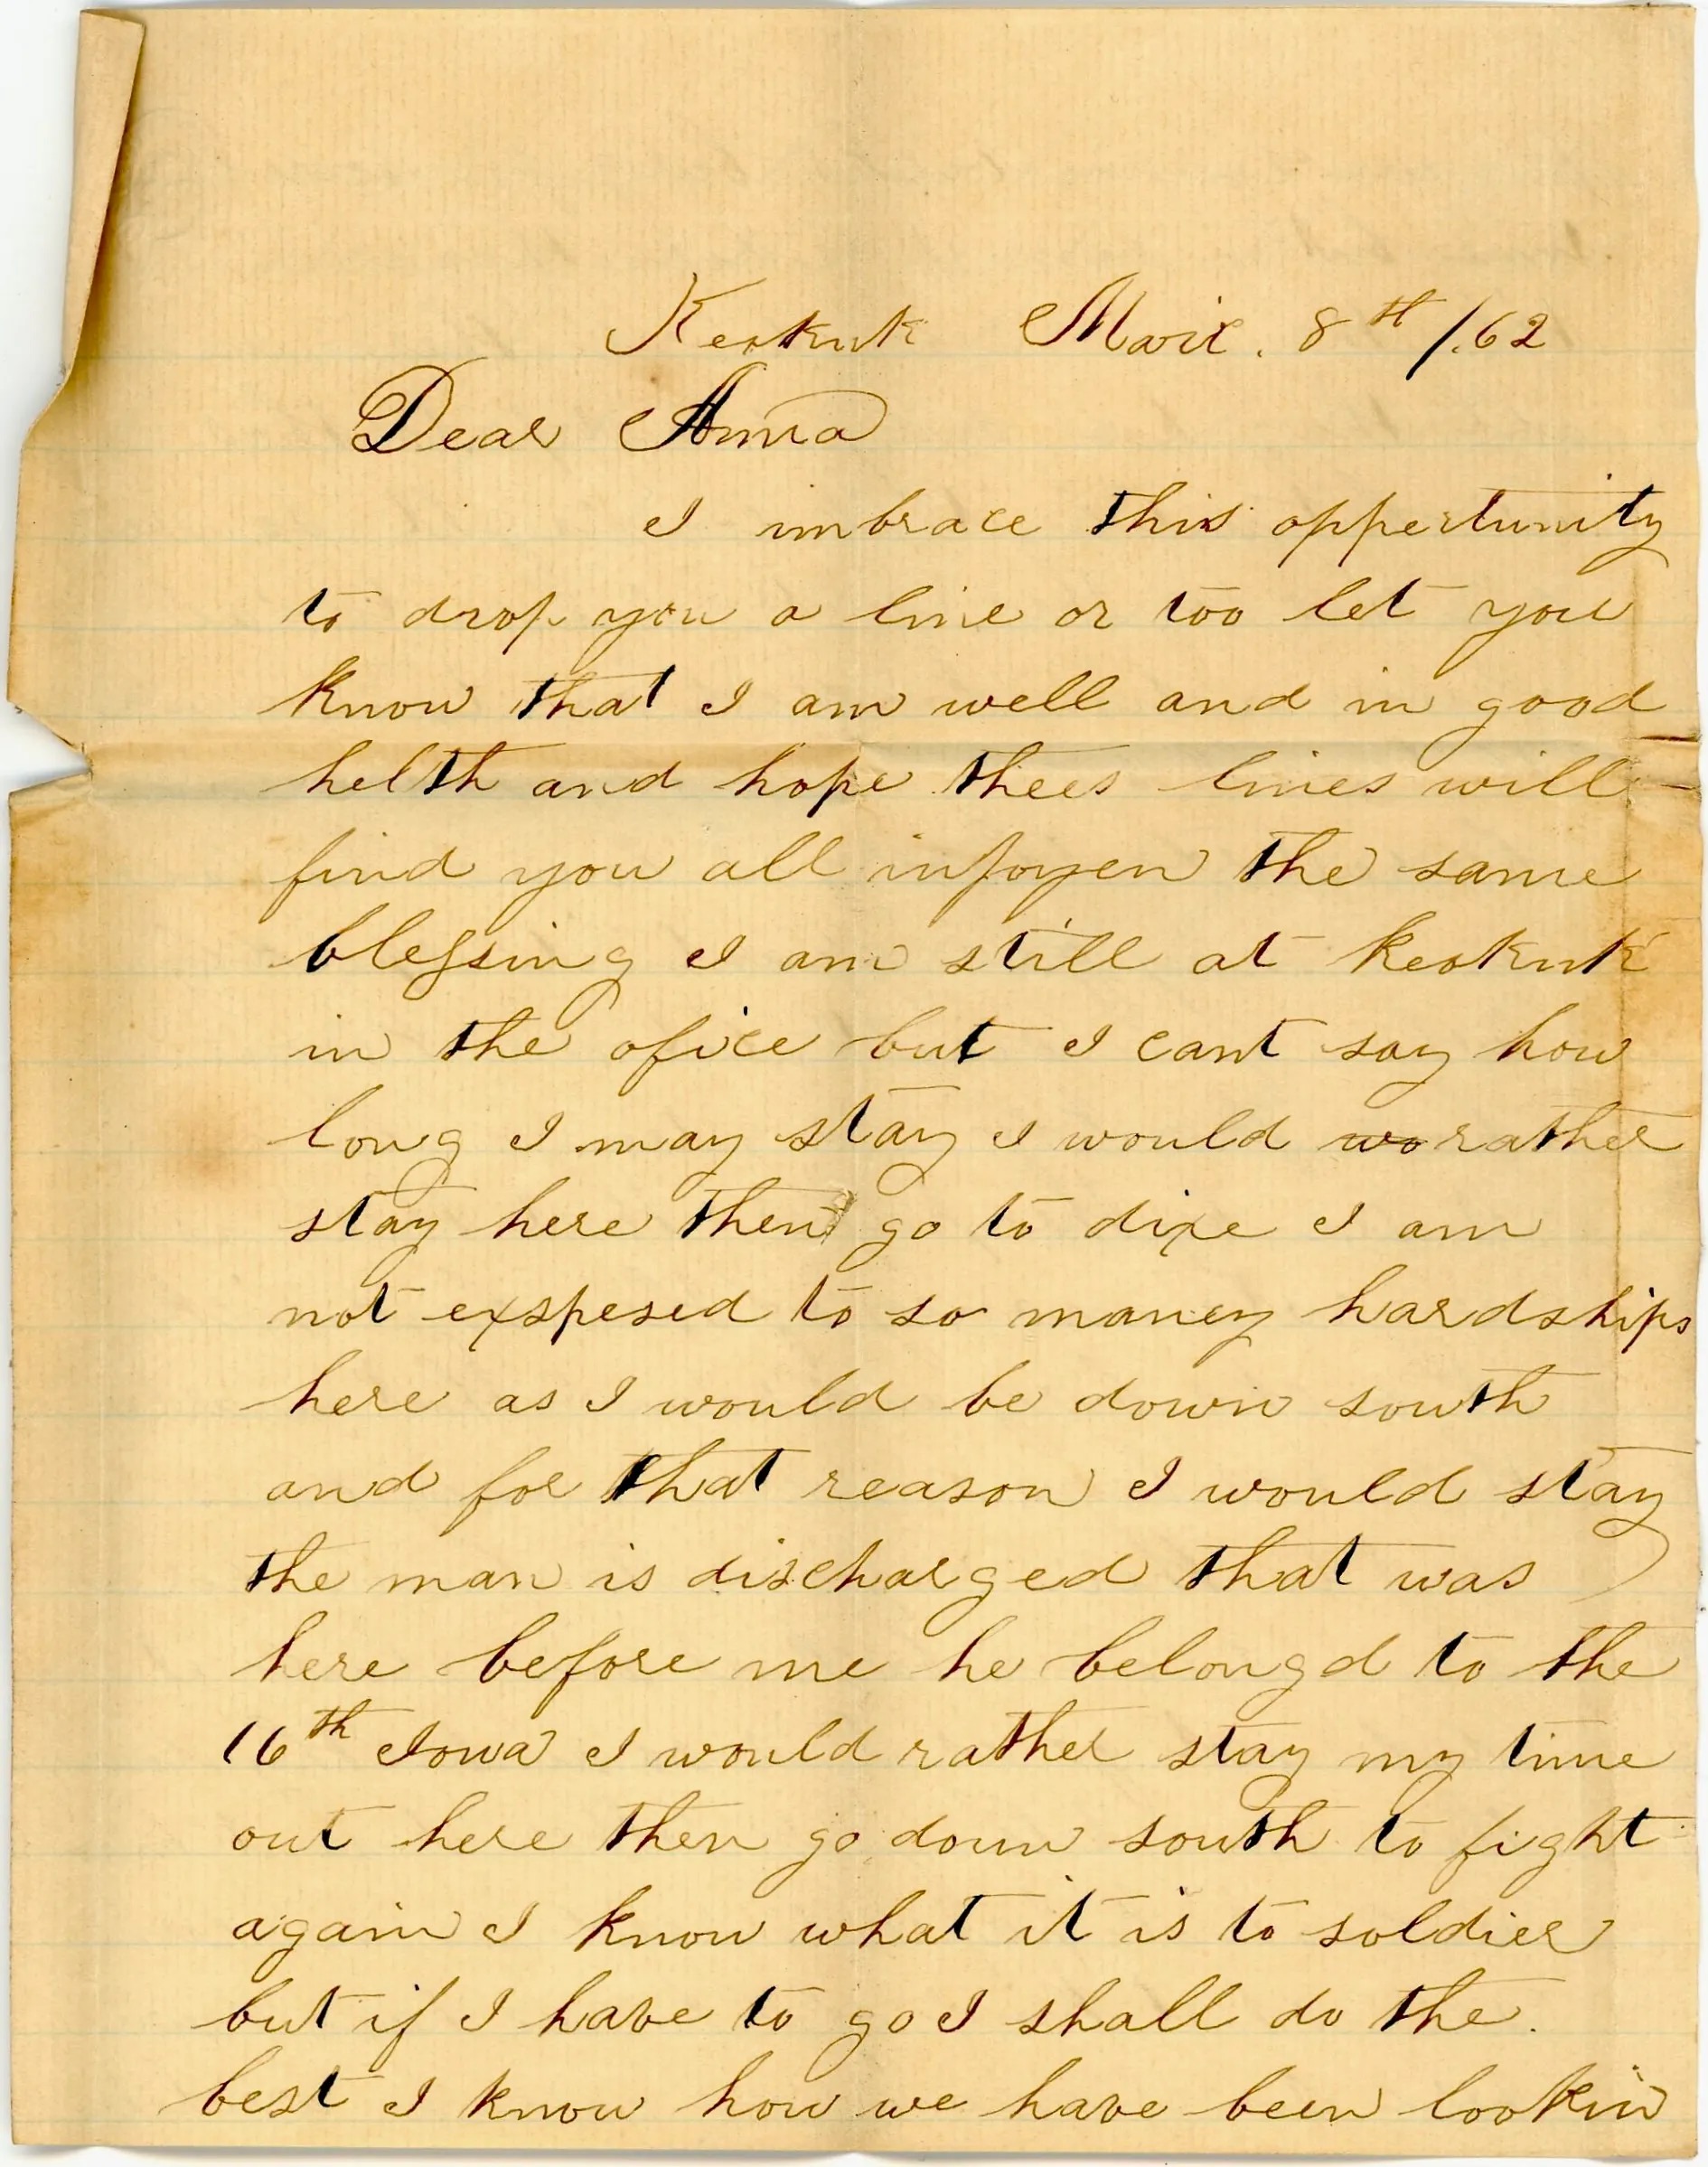 Keokuk Marc. 8th /.62
Dear Anna
I imbrace this oppertunity
to drop you a line or too let you
know that I am well and in good
helth and hope thees lines will
find you all injoyen the same
blessing I am still at Keokuk
in the ofice but I cant say how
long I may stay I would wo rather
stay here then go to dixe I am
not exspesed to so maney hardships
here as I would be down south
and for that reason I would stay
the man is discharged that was
here before me he belongd to the
16th Iowa I would rather stay my time
out here then go down south to fight
again I know what it is to soldier
but if I have to go I shall do the.
best I know how we have been lookin